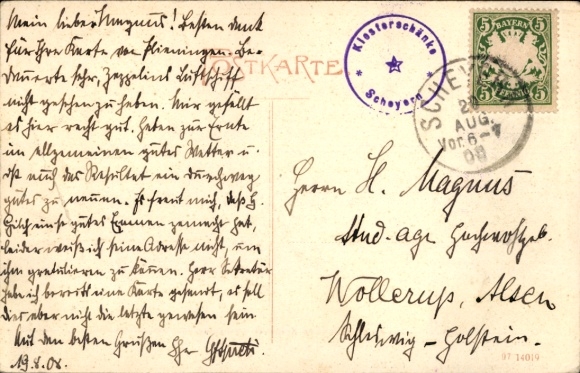 Mein lieber Magnus! Besten Dank
für Ihre Karte von Plieningen. Be-
dauerte sehr, Zeppelins Luftschiff
nicht gesehen zu haben. Mir gefällt
es hier recht gut, haben zur Ernte
im allgemeinen gutes Wetter u.
ist auch das Resultat ein durchweg
gutes zu nennen. Es freut mich, daß H.
ein so gutes Examen gemacht hat,
leider weiß ich seine Adresse nicht, um
ihm gratulieren zu können. Herr Sekretär
habe ich bereits eine Karte gesandt, es soll
dies aber nicht die letzte gewesen sein.
Mit den besten Grüßen Ihr
19.8.08.
POSTKARTE
Klosterschänke
* Scheyern *
5 BAYERN 5
5 5
SCHEYERN
AUG.
Vor. 6-7
08
Herrn H. Magnus
stud. agr.
Wollerup, Alsen
Schleswig-Holstein.
97 14019